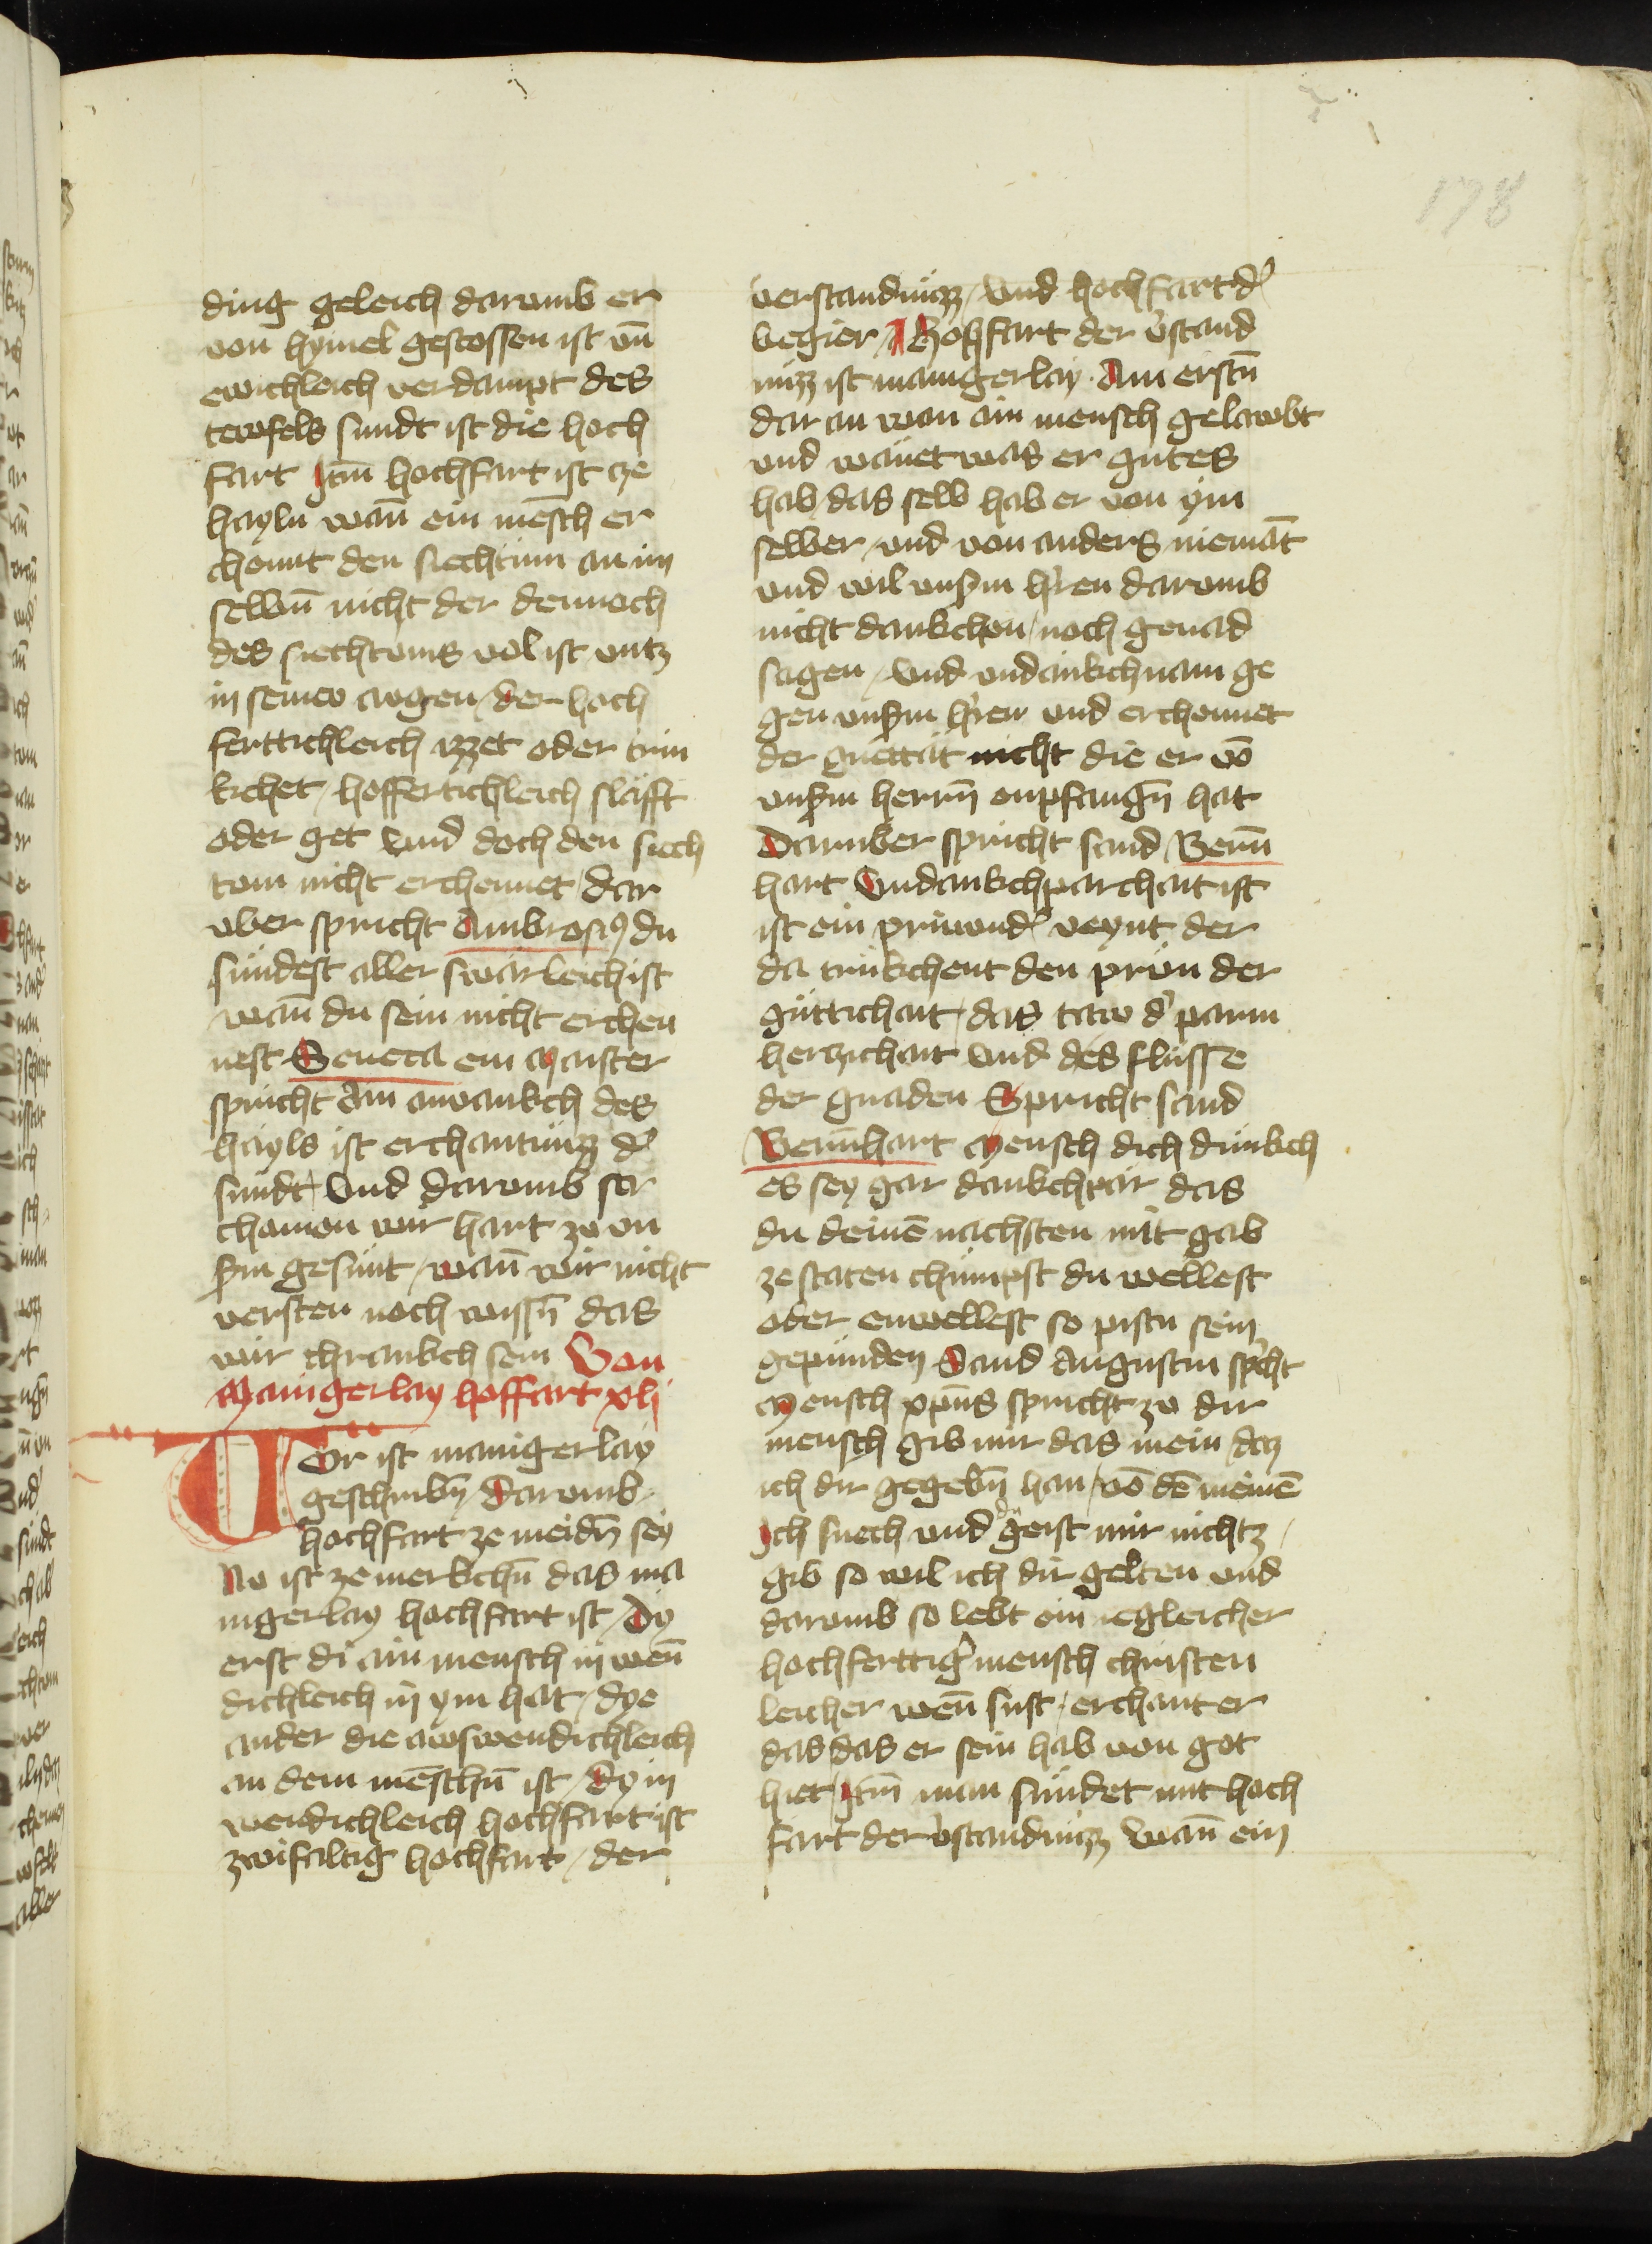 178
ding geleich darumb er
von hymel gestossen ist vn̄
ewichleich verdampt des
tewfels sundt ist die hoch
fart Itm̄ hochfart ist ze
hayln wan̄ ein mēsch er
chennt den siechtum an im
selbn̄ nicht der dennoch
des siechtums vol ist vntz
in seinew augen / der hoch
ferttichleich yzzet oder trin
kchet / hoffertichleich slafft
oder get vnd doch den siech
tom nicht erchennet / dar
vber spricht Ambrosiꝰ du
sundest aller swarleichist
wan̄ du sein nicht erchen
nest Seneca ein maister
spricht Ain anvankch des
hayls ist erchantnuzz d̛
sundt / vnd darumb so
chomen wir hart zu vn
sm̄ gesunt / wan̄ wir nicht
versten noch wissn̄ das
wir chrankch sein Von
Manigerlay hoffart xlj
Vor ist manigerlay
geschribn̄ darumb
hochfart ze meidn̄ sey
Nv ist ze merkchn̄ das ma
nigerlay hochfart ist / Dy
erst di ain mensch inwen̄
dichleich in ym hat / dye
ander die auswendichleich
an dem mēschn̄ ist / dy in
wendichleich hochfart ist
zwifaltig hochfart / der
verstandnüzz / vnd hochfart d̛
begier / Hohfart der v̛stand
nuzz ist manigerlay. Am erstn̄
dar an wan ain mensch gelawbt
vnd wänet was er gutes
hab / das selb hab er von ym
selber / vnd von anders niemāt
vnd wil vnsm̄ hr̄en darumb
nicht dankchen / noch genad
sagen / vnd vndankchnam ge
gen vnsm̄ hr̄en vnd erchennet
der guettät nicht die er vō
vnsm̄ herrn̄ enpfangn̄ hat
Daruber spricht sand Bern̄
hart Vndankchparchait ist
ist ein prinund̛ veynt der
da trinkchent den prun der
güttichait / das taw d̛ parm
herzichait vnd des flusse
der gnaden Spricht sand
Bernhart Mensch dich dunkch
es sey gar dankchpär das
du deinē nachsten mit gab
ze staten chumpst du wellest
oder enwellest so pistu sein
gepunden Sand Augustin sp̛cht
Mensch xpūs spricht zu dir
mensch gib mir das mein / daz
ich dir gegebn̄ han / vō dē meinē
Ich suech vnd du geist mir nichtz /
gib so wil ich dir gelten vnd
darumb so lebt ein iegleicher
hochferttig̛ mensch christen
leicher wen̄ sust / erchant er
das / das er sein hab von got
hiet / Itm̄ man sundet mit hoch
fart der v̛standnuzz wan̄ ein